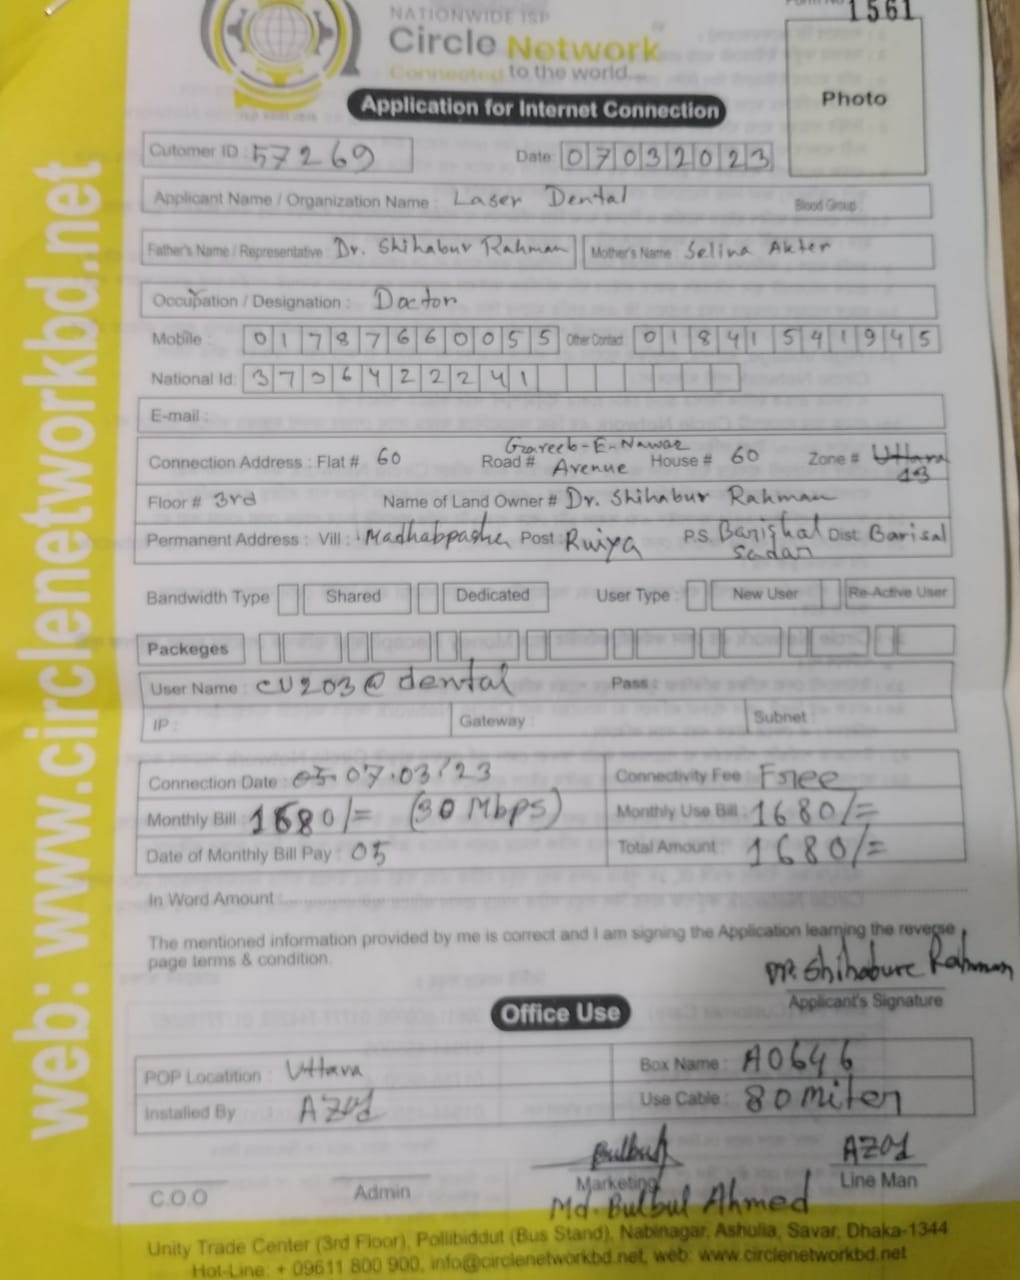 Form No 1561
NATIONWIDE ISP
Circle Network
Connected to the world...
Photo
Application for Internet Connection
Cutomer ID : 57269 Date: 07032023
Applicant Name / Organization Name : Laser Dental Blood Group :
Father's Name / Representative : Dr. Shihabur Rahman Mother's Name : Selina Akter
Occupation / Designation : Doctor
Mobile : 01787660055 Other Contact: 01841541945
National Id: 3736422241
E-mail :
Connection Address : Flat # 60 Road # Gareeb-E-Nawaz Avenue House # 60 Zone # Uttara 13
Floor # 3rd Name of Land Owner # Dr. Shihabur Rahman
Permanent Address : Vill : Madhabpasha Post: Ruiya P.S. Barishal Sadar Dist: Barisal
Bandwidth Type Shared Dedicated User Type : New User Re-Active User
Packeges
User Name : CU203@dental Pass :
IP : Gateway : Subnet :
Connection Date : 05.07.03/23 Connectivity Fee : Free
Monthly Bill : 1680/= (30 Mbps) Monthly Use Bill : 1680/=
Date of Monthly Bill Pay : 05 Total Amount : 1680/=
In Word Amount :
The mentioned information provided by me is correct and I am signing the Application learning the reverse
page terms & condition.
DR. Shihabure Rahman
Applicant's Signature
Office Use
POP Locatition : Uttara Box Name : A0646
Installed By AZad Use Cable : 80 miter
Bulbul AZad
C.O.O Admin Marketing Line Man
Md. Bulbul Ahmed
Unity Trade Center (3rd Floor), Pollibiddut (Bus Stand), Nabinagar, Ashulia, Savar, Dhaka-1344
Hot-Line: + 09611 800 900, info@circlenetworkbd.net, web: www.circlenetworkbd.net
web: www.circlenetworkbd.net